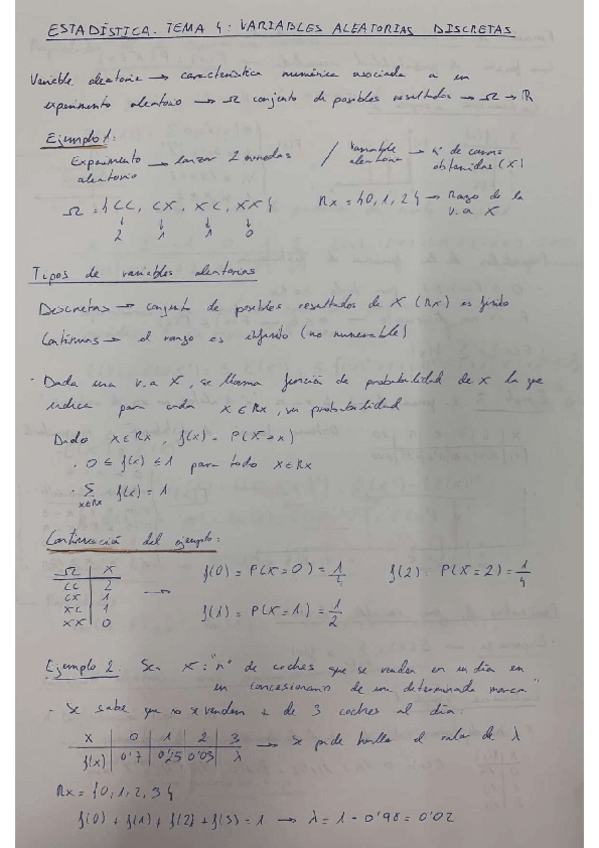 ESTADÍSTICA. TEMA 4: VARIABLES ALEATORIAS DISCRETAS
Variable aleatoria → característica numérica asociada a un
experimento aleatorio → Ω conjunto de posibles resultados → Ω → R
Ejemplo 1:
Experimento aleatorio → lanzar 2 monedas / Variable aleatoria → nº de caras obtenidas (X)
Ω = {CC, CX, XC, XX}
↓ ↓ ↓ ↓
2 1 1 0
Rx = {0, 1, 2} → Rango de la v.a X
Tipos de variables aleatorias
Discretas → conjunto de posibles resultados de X (Rx) es finito
Continuas → el rango es infinito (no numerable)
· Dada una v.a X, se llama función de probabilidad de X la que
indica para cada x ∈ Rx, su probabilidad
Dado x ∈ Rx, f(x) = P(X = x)
· 0 ≤ f(x) ≤ 1 para todo x ∈ Rx
· Σ f(x) = 1
x∈Rx
Continuación del ejemplo:
Ω | X
CC | 2
CX | 1
XC | 1
XX | 0
→ f(0) = P(X = 0) = 1/4 f(2) = P(X = 2) = 1/4
f(1) = P(X = 1) = 1/2
Ejemplo 2: Sea X: "nº de coches que se venden en un día en
un concesionario de una determinada marca"
- Se sabe que no se venden + de 3 coches al día:
X | 0 | 1 | 2 | 3
f(x) | 0'7 | 0'25 | 0'03 | λ → Se pide hallar el valor de λ
Rx = {0, 1, 2, 3}
f(0) + f(1) + f(2) + f(3) = 1 → λ = 1 - 0'98 = 0'02